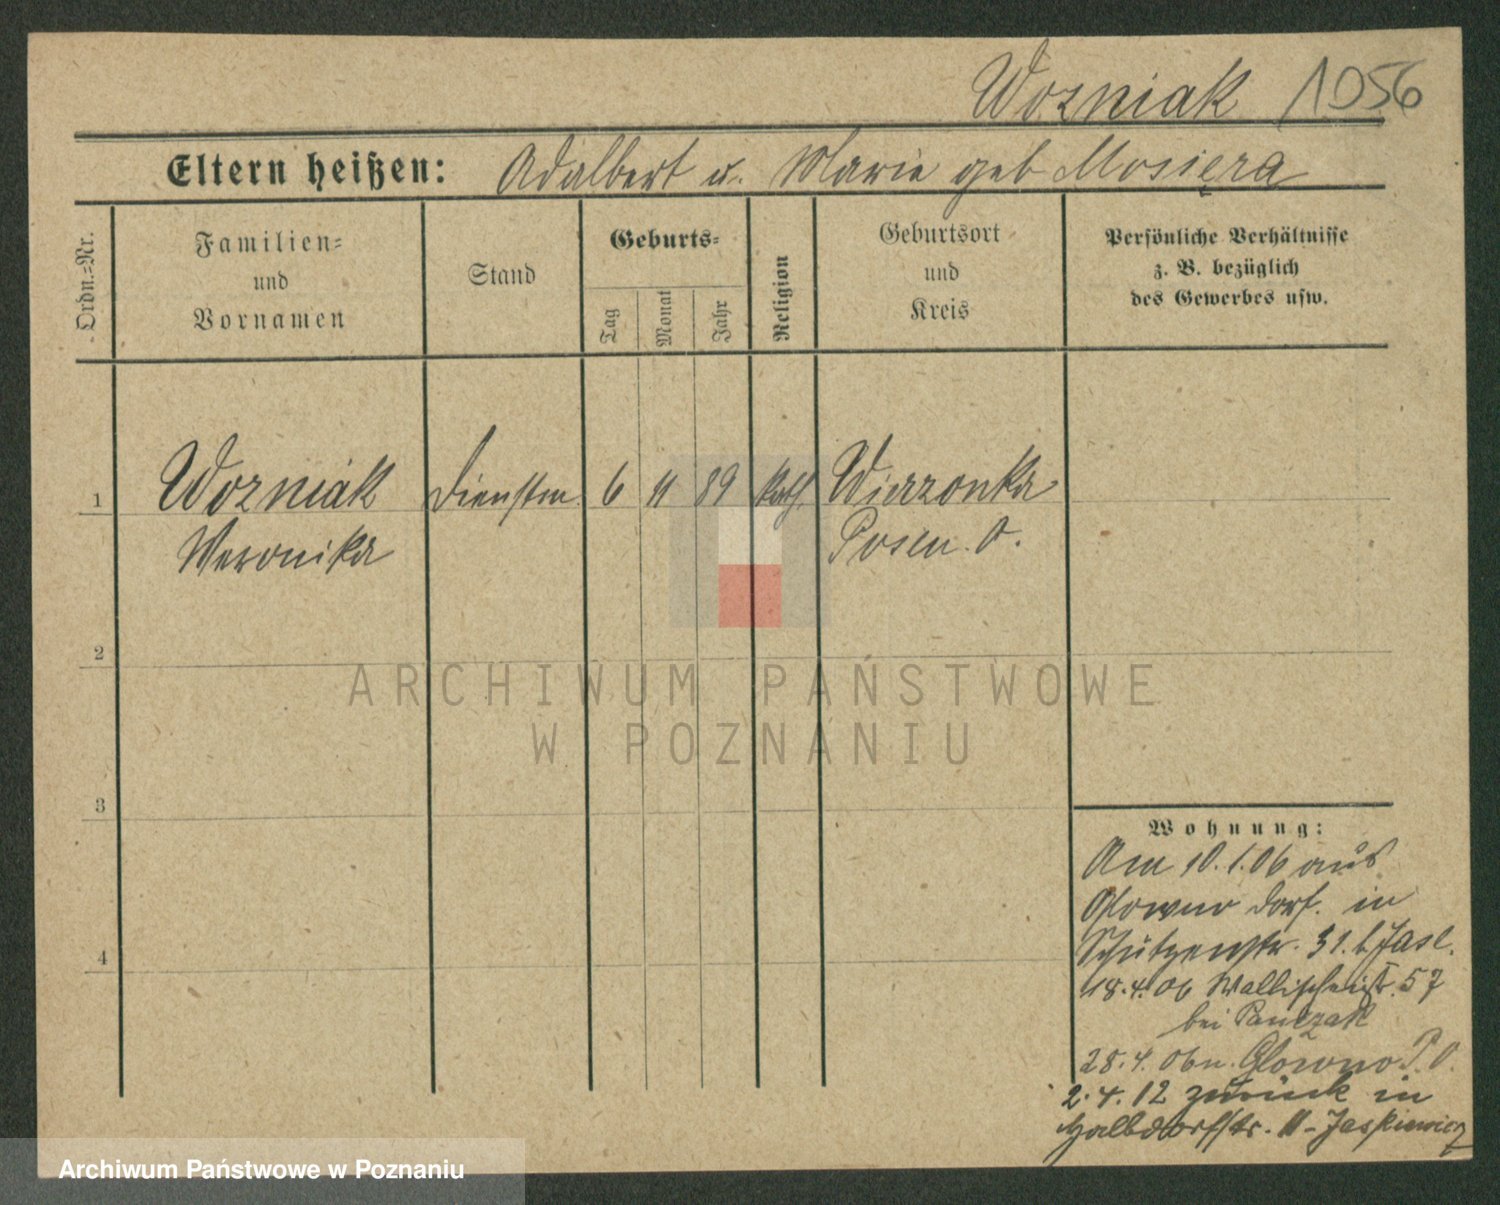 Wozniak 1056
Eltern heißen: Adalbert u. Marie geb Mosięra
Ordn.=Nr.
Familien=
und
Vornamen
Stand
Geburts=
Tag
Monat
Jahr
Religion
Geburtsort
und
Kreis
Persönliche Verhältnisse
z. B. bezüglich
des Gewerbes usw.
1 Wozniak Dienstm. 6 11 89 kath. Wierzonka
Weronika Posen. O.
2
ARCHIWUM PAŃSTWOWE
W POZNANIU
3
4
Wohnung:
Am 10.1.06 aus
Glowno dorf. in
Schützenstr. 31. b. Jasl.
18.4.06 Wallischeistr. 57
bei Panczak
28.4.06 n. Glowno P.O.
2.4.12 zurück in
Halbdorfstr. 11 - Jaskiewicz
Archiwum Państwowe w Poznaniu